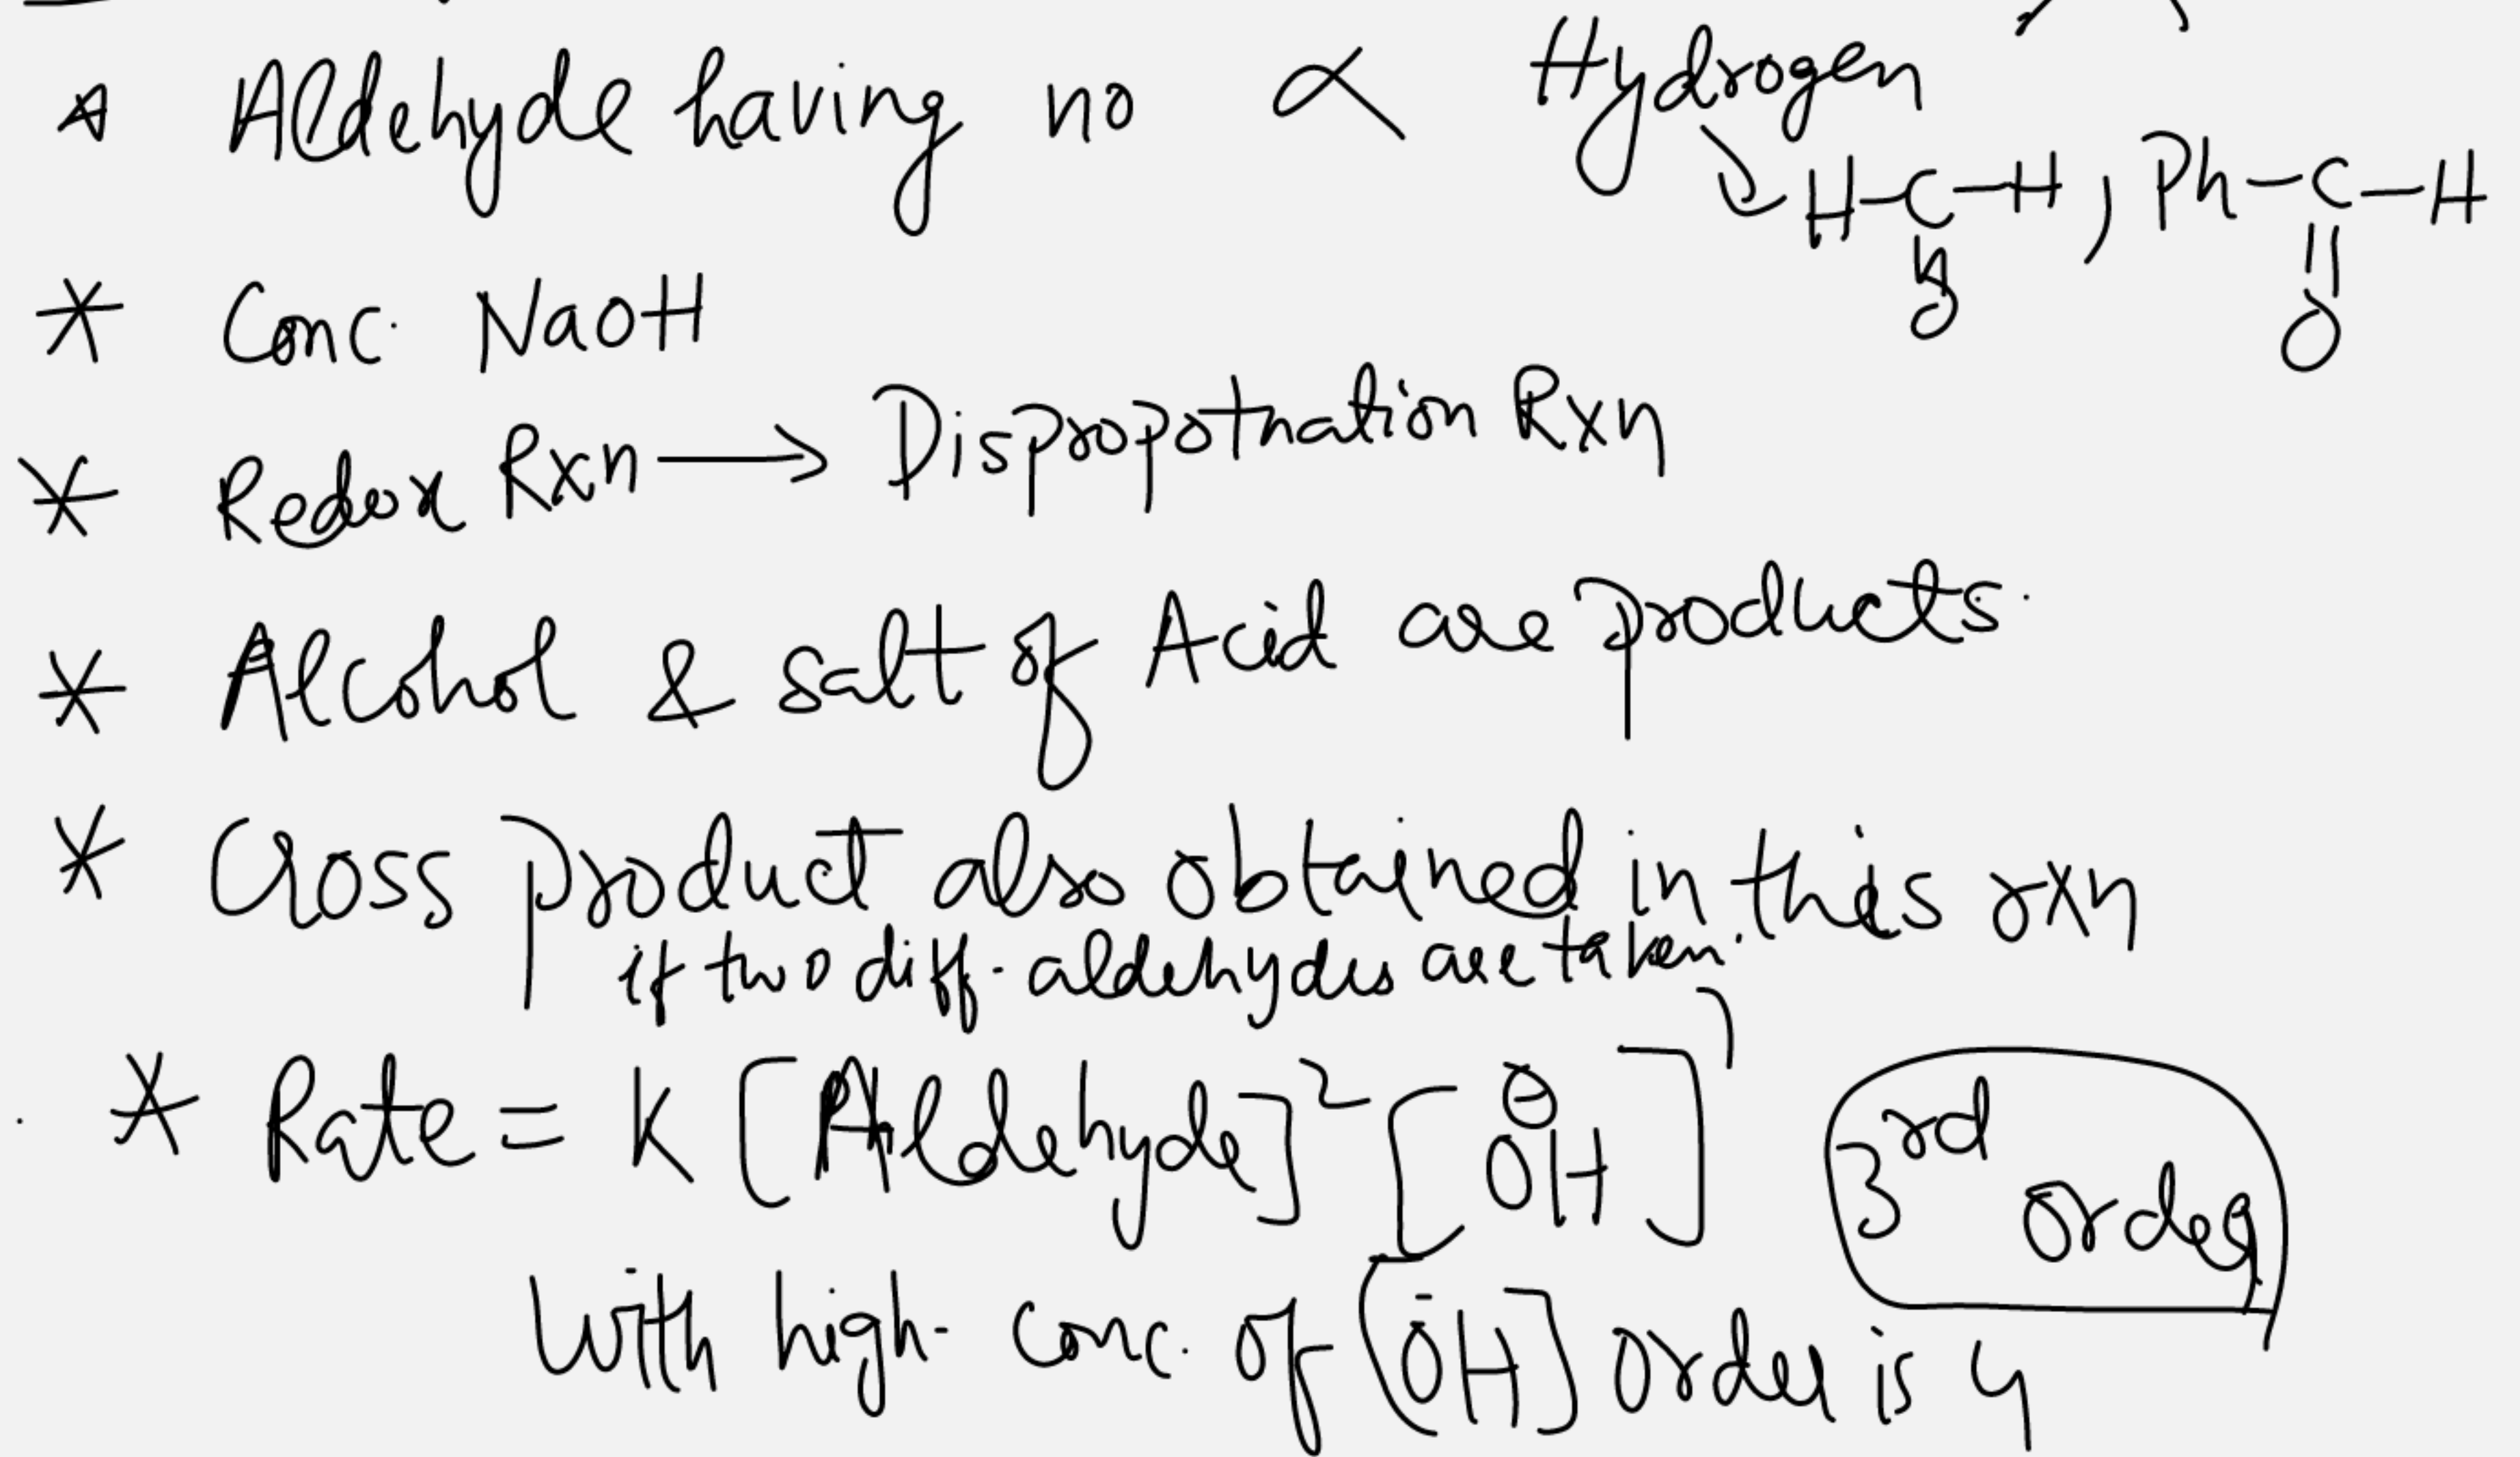 * Aldehyde having no α Hydrogen
H-C-H, Ph-C-H
O O
* Conc. NaOH
* Redox Rxn → Dispropotnation Rxn
* Alcohol & salt of Acid are products.
* Cross product also obtained in this rxn
if two diff. aldehydes are taken.
* Rate = K [Aldehyde]² [OH⊖]¹ 3rd order
With high conc. of [ŌH] order is 4